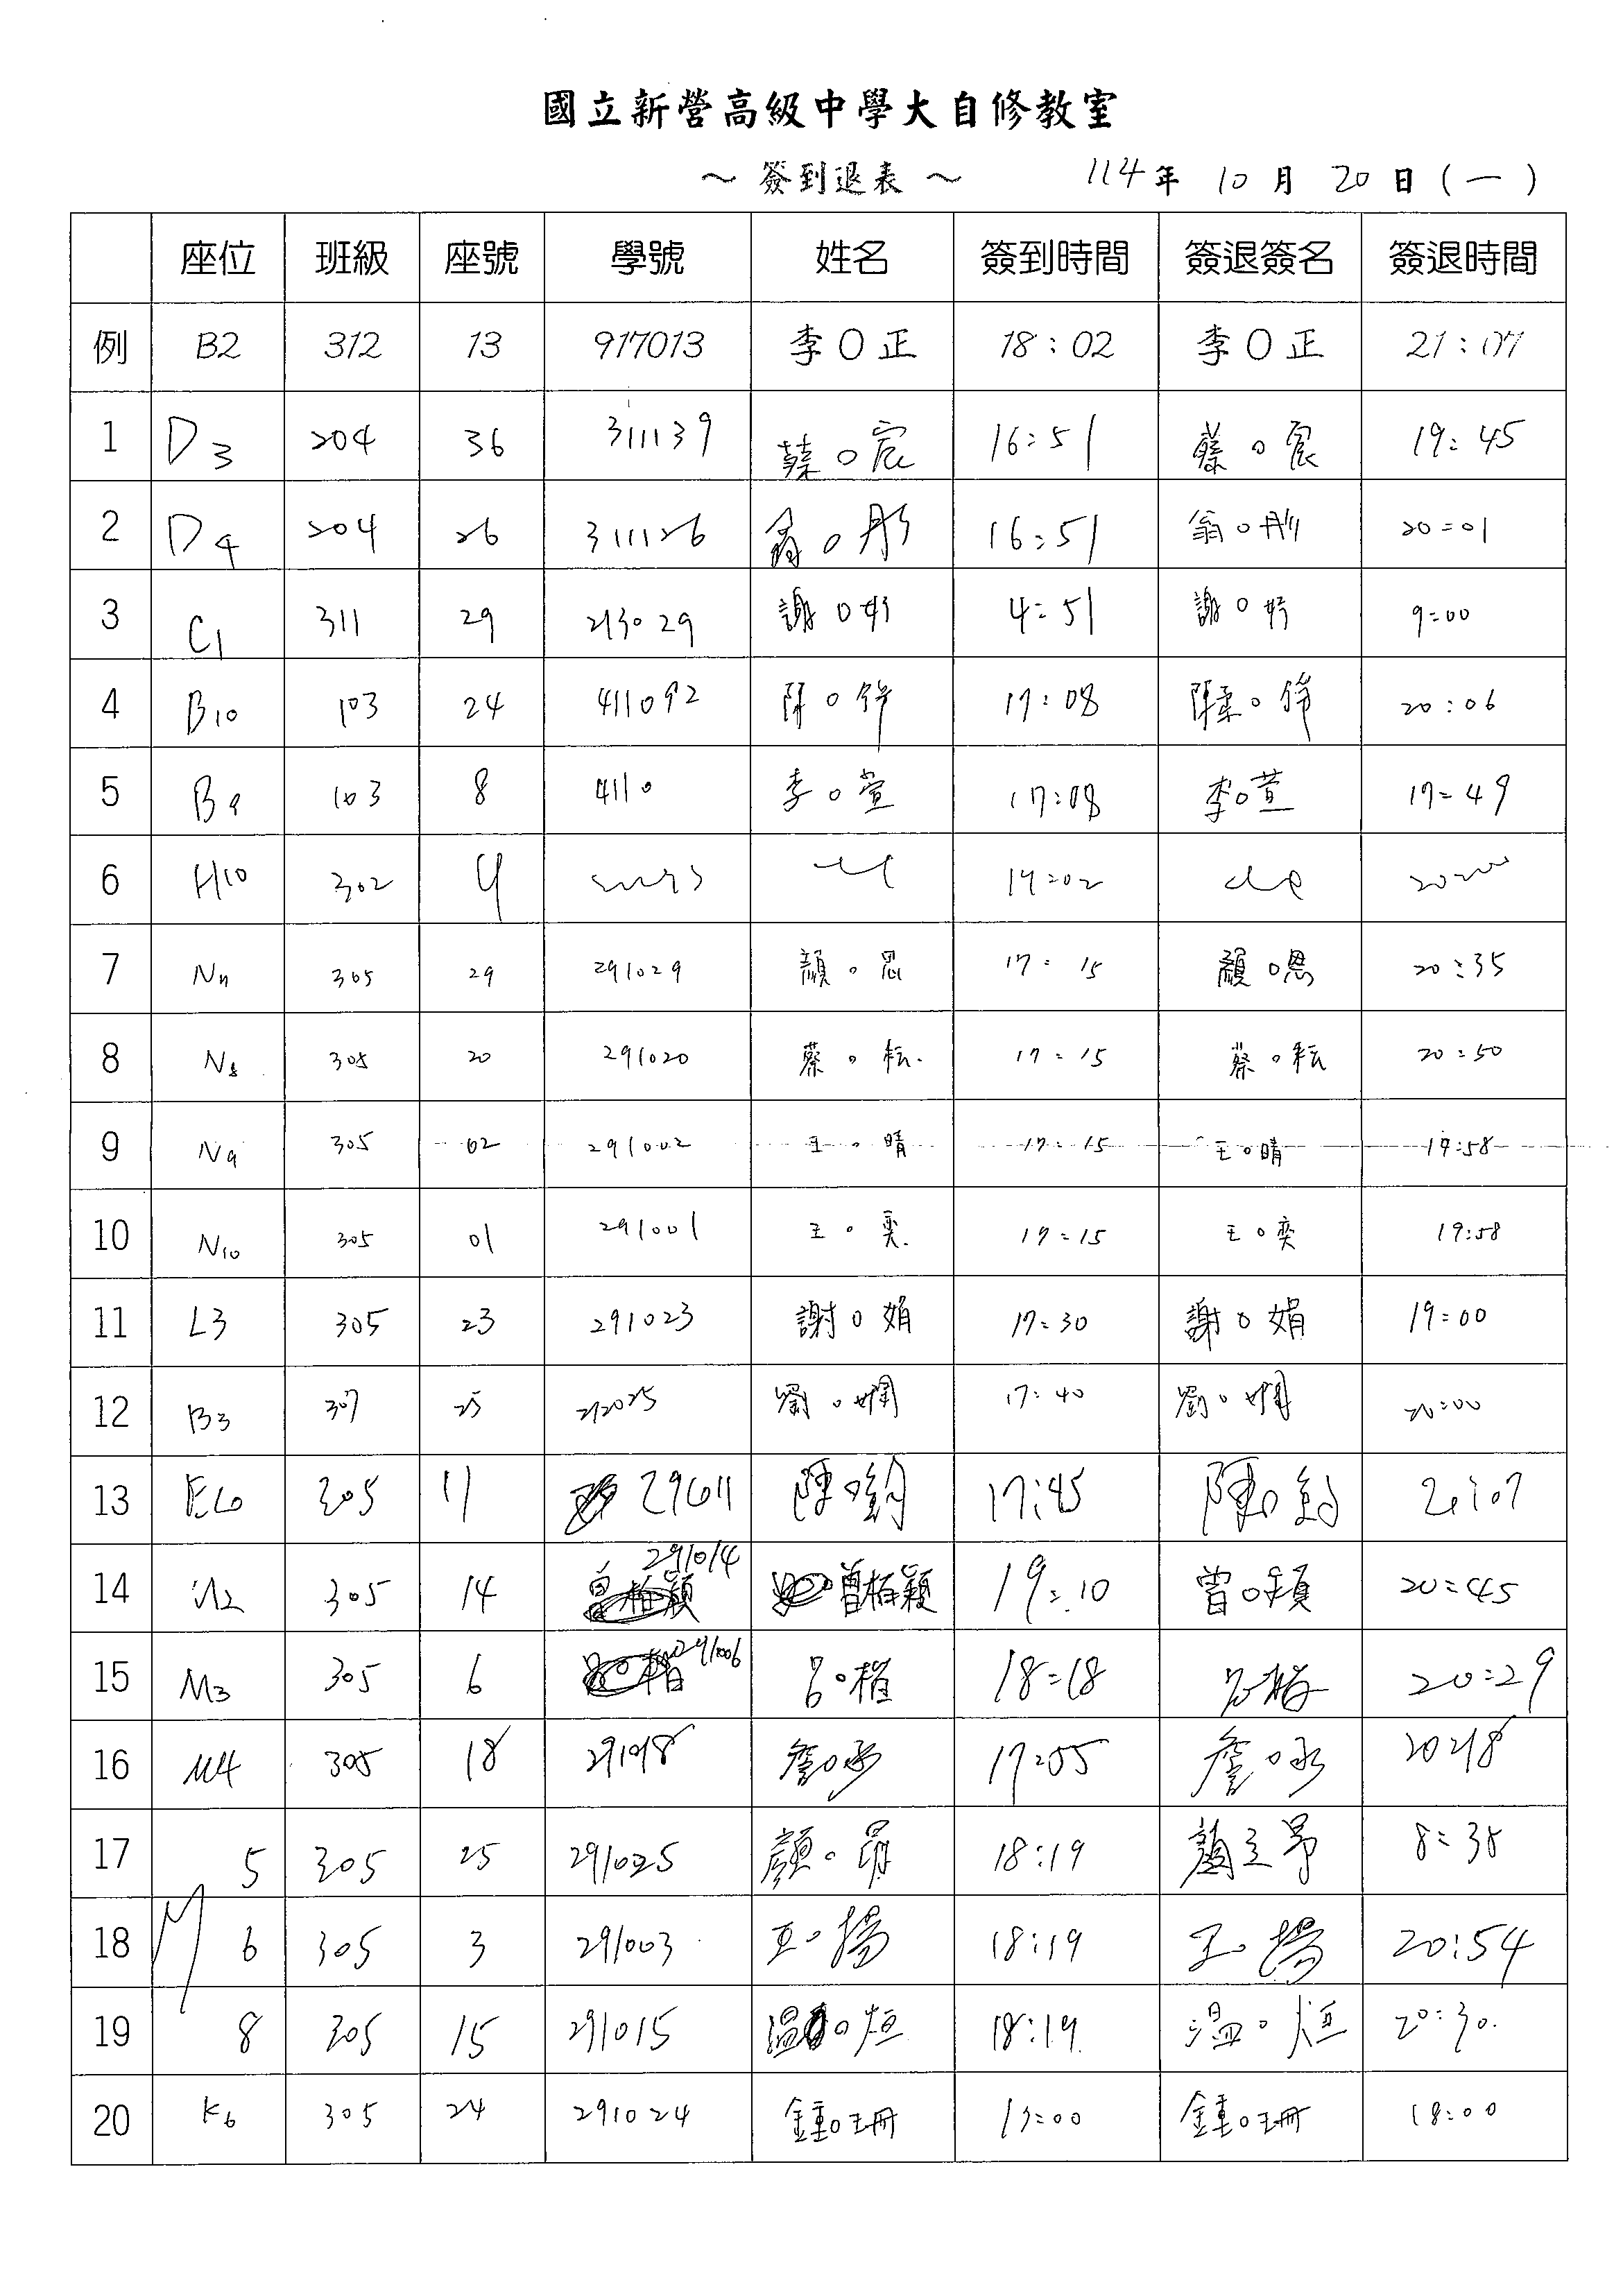 國立新營高級中學大自修教室
～ 簽到退表 ～ 114年 10月 20日(一)
座位 班級 座號 學號 姓名 簽到時間 簽退簽名 簽退時間
例 B2 312 13 917013 李O正 18:02 李O正 21:07
1 D3 204 36 311139 蔡O宸 16:51 蔡O宸 19:45
2 D4 204 26 311126 翁O彤 16:51 翁O彤 20:01
3 C1 311 29 213029 謝O 4:51 謝O 9:00
4 B10 103 24 411092 陳O錚 17:08 陳O錚 20:06
5 B9 103 8 4110 李O萱 17:08 李O萱 17:49
6 H10 302 4 17:02
7 305 29 291029 顏O恩 17:15 顏O恩 20:35
8 N8 305 20 291020 蔡O耘 17:15 蔡O耘 20:50
9 N9 305 02 291002 王O晴 17:15 王O晴 19:58
10 N10 305 01 291001 王O奕 17:15 王O奕 19:58
11 L3 305 23 291023 謝O娟 17:30 謝O娟 19:00
12 B3 307 25 212025 劉O嫻 17:40 劉O嫻 20:00
13 305 11 陳O鈞 17:45 陳O鈞
14 305 14 291014 曾柏穎 19:10 曾O穎 20:45
15 M3 305 6 291006 18:18 20:29
16 M4 305 18 291018 詹O丞 17:55 詹O丞 20:18
17 5 305 25 291025 顏O昂 18:19 顏立昂 8:38
18 M 6 305 3 291003 王O揚 18:19 王O揚 20:54
19 8 305 15 291015 溫O烜 18:19 溫O烜 20:30
20 K6 305 24 291024 鍾O珊 17:00 鍾O珊 18:00